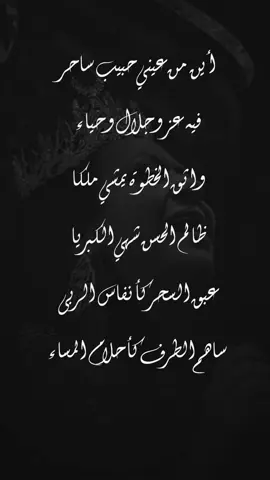 أين من عيني حبيب ساحر
فيه عز وجلال وحياء
واثق الخطوة يمشي ملكا
ظالم الحسن شهي الكبريا
عبق السحر كأنفاس الربى
ساهم الطرف كأحلام المساء